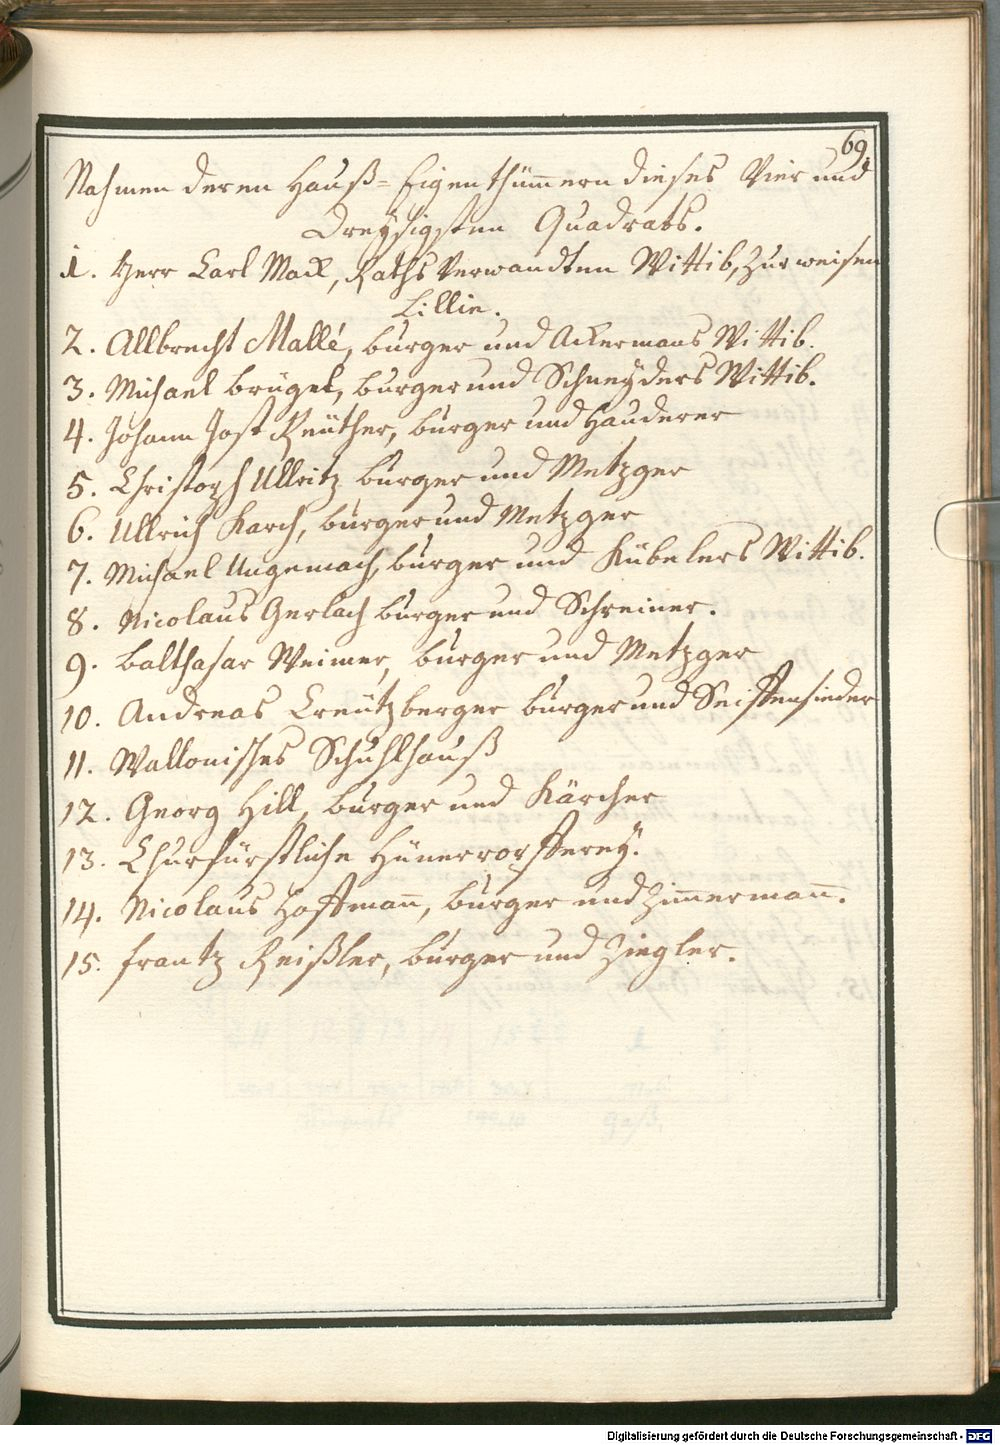 69.
Nahmen deren Hauß-Eigenthümern dieses Vier und
Dreysigsten Quadrats.
1. Herr Carl Mack, Raths Verwandten Wittib, zur weisen
Lillie.
2. Allbrecht Mallé, burger und Ackermans Wittib.
3. Michael Brügel, burger und Schneyders Wittib.
4. Johann Jost Reüther, burger und Hauderer
5. Christoph Ullritz burger und Metzger
6. Ullrich Karch, burger und Metzger
7. Michael Ungemach, burger und Kübelers Wittib.
8. Nicolaus Gerlach burger und Schreiner.
9. Balthasar Weimer, burger und Metzger
10. Andreas Creützberger burger und Seiffensieder
11. Wallonisches Schuhlhauß
12. Georg Hill, burger und Kärcher
13. Churfürstliche
14. Nicolaus Hoffman̄, burger und Zim̄erman̄.
15. Frantz Reißler, burger und Ziegler.
Digitalisierung gefördert durch die Deutsche Forschungsgemeinschaft - DFG